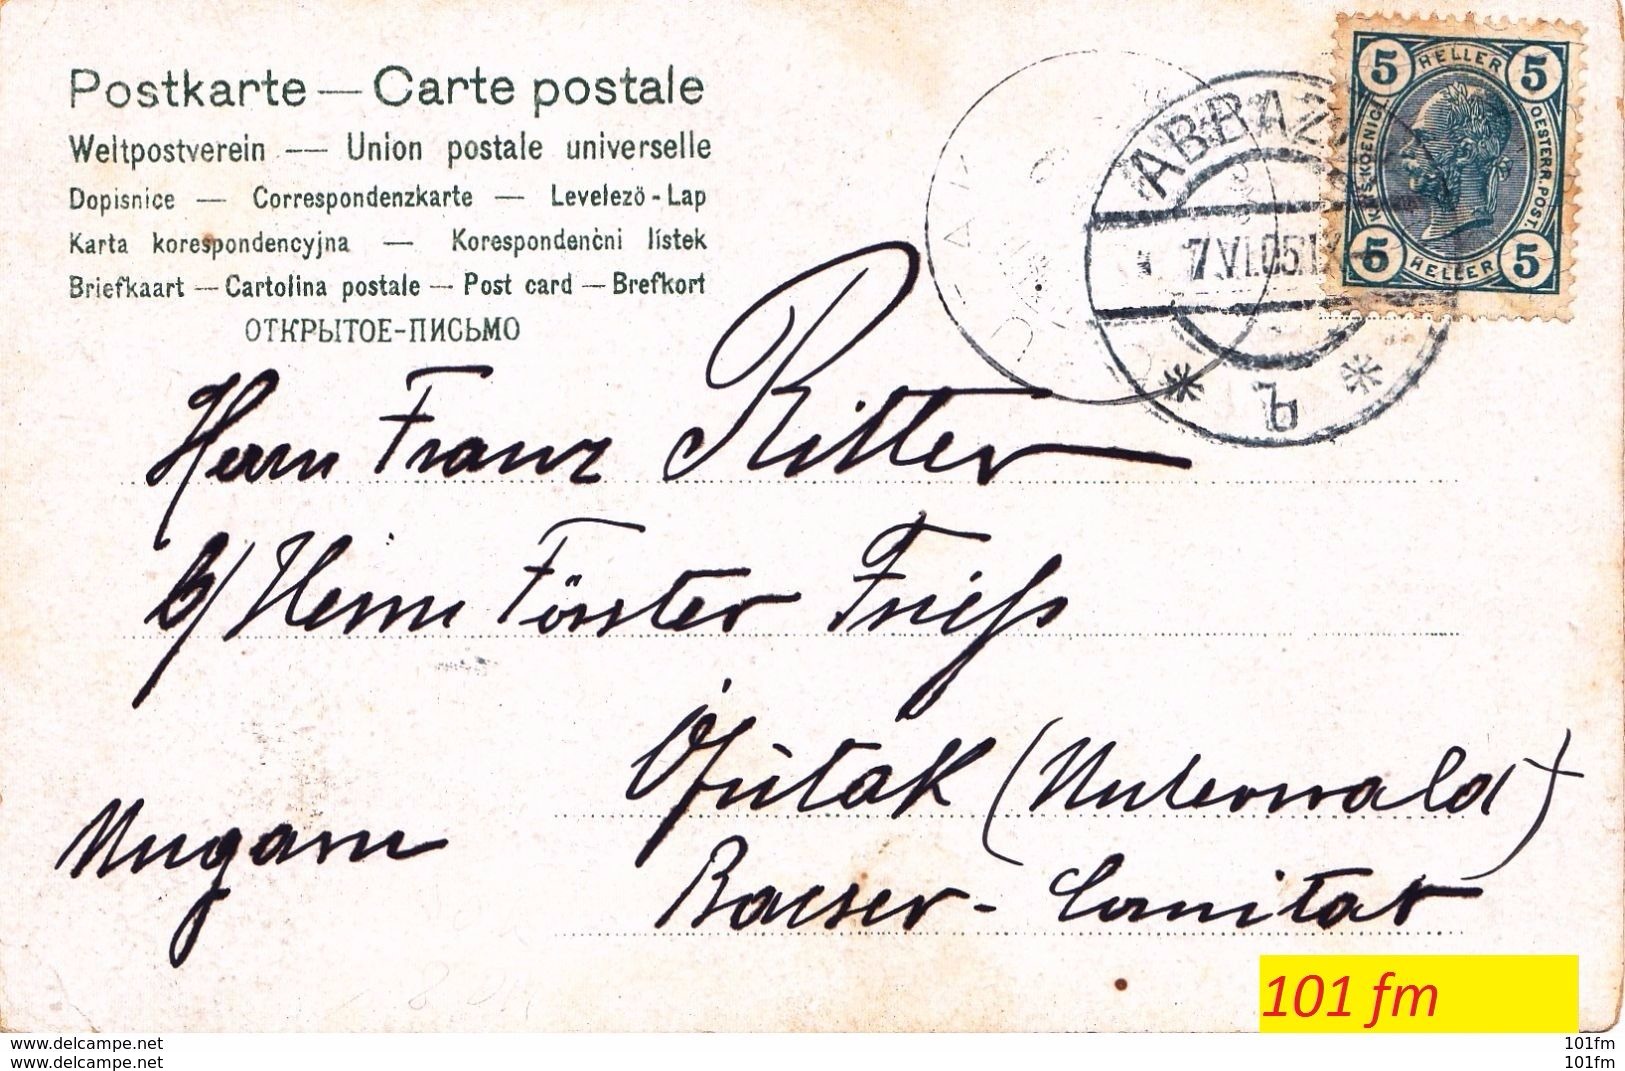 Postkarte — Carte postale
Weltpostverein — Union postale universelle
Dopisnice — Correspondenzkarte — Levelező-Lap
Karta korespondencyjna — Korespondenčni lístek
Briefkaart — Cartolina postale — Post card — Brefkort
ОТКРЫТОЕ-ПИСЬМО
5 HELLER 5
KAIS. KOENIGL. OESTERR. POST.
5 HELLER 5
ABBAZI
7 VI 05
b
Herrn Franz Ritter
b/ Herrn Förster Frieß
Ófutak (Unterwald)
Ungarn
Bacser-Comitat
101 fm
www.delcampe.net
101fm
www.delcampe.net
101fm